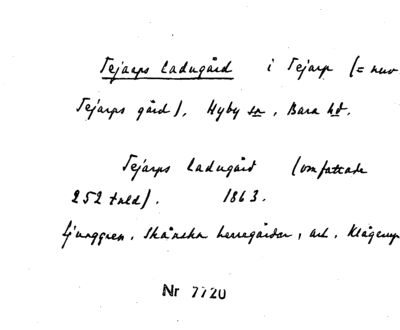 Tejarps Ladugård i Tejarp (= nuv
Tejarps gård), Hyby sn, Bara hd.
Tejarps Ladugård (omfattade
252 tnld). 1863.
Ljunggren. Skånska herregårdar, art. Klågerup
Nr 7720